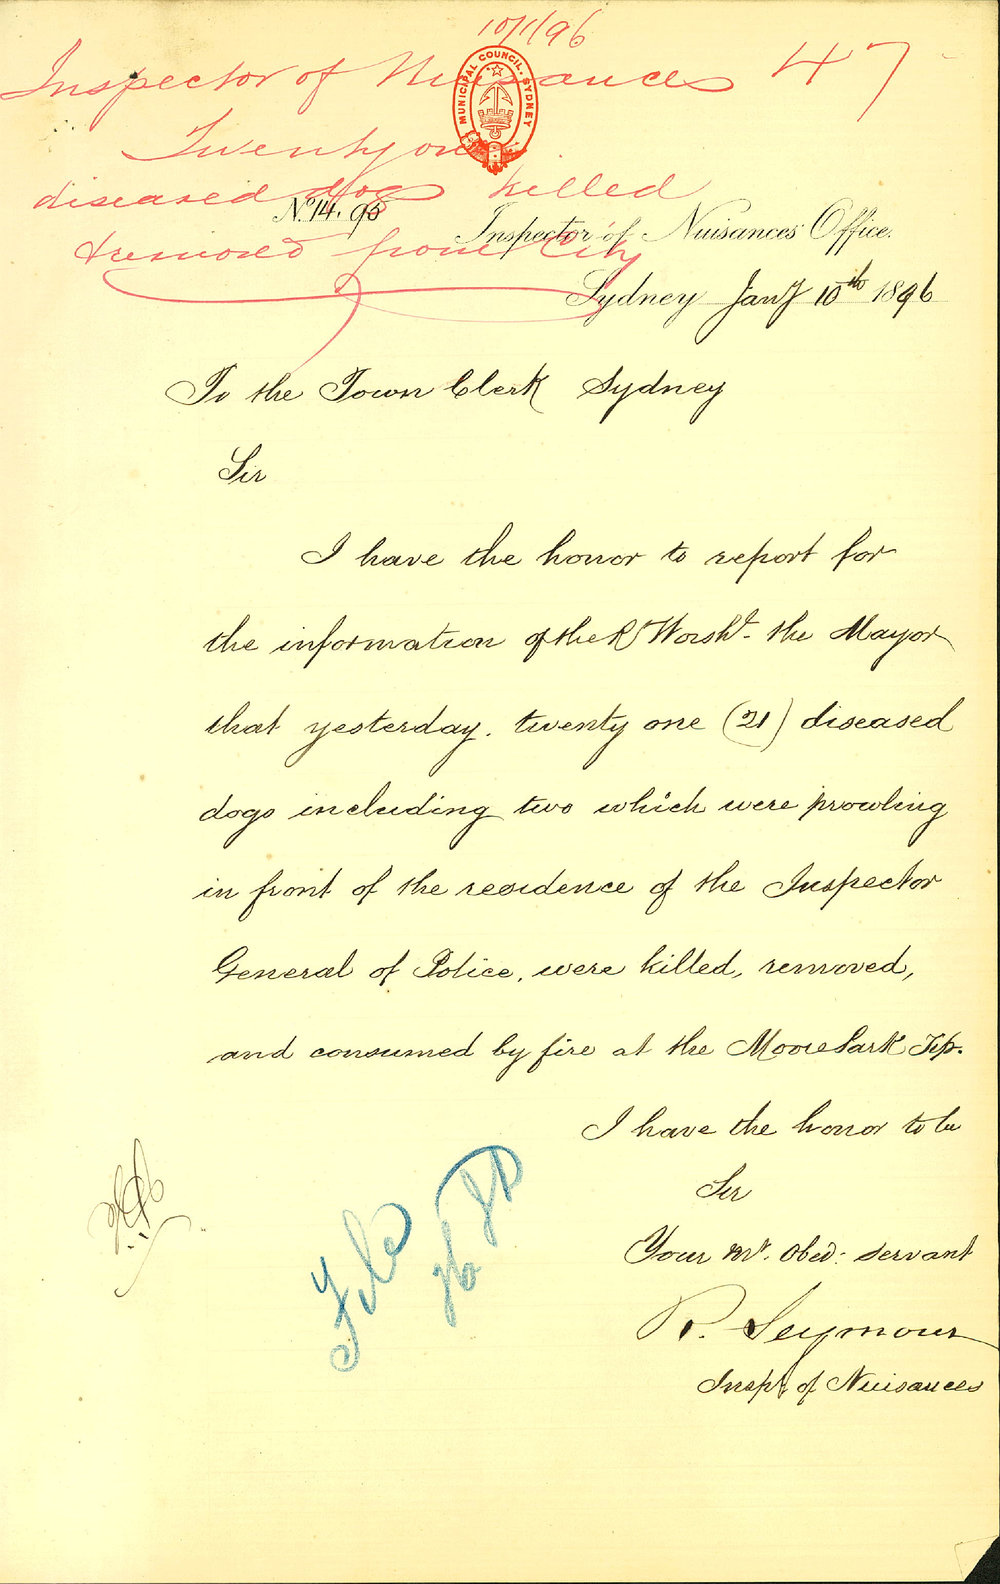 10/1/96
Inspector of Nuisances 47
MUNICIPAL COUNCIL. SYDNEY
Twenty one
diseased dogs killed
& removed from City
No. 14. 95
Inspector of Nuisances Office.
Sydney Jany 10th 1896
To the Town Clerk Sydney
Sir
I have the honor to report for
the information of the Rt Worshl. the Mayor
that yesterday. twenty one (21) diseased
dogs including two which were prowling
in front of the residence of the Inspector
General of Police, were killed, removed,
and consumed by fire at the Moore Park Tip.
I have the honor to be
Sir
Your Mt. Obed: servant
R. Seymour
Inspt of Nuisances
File